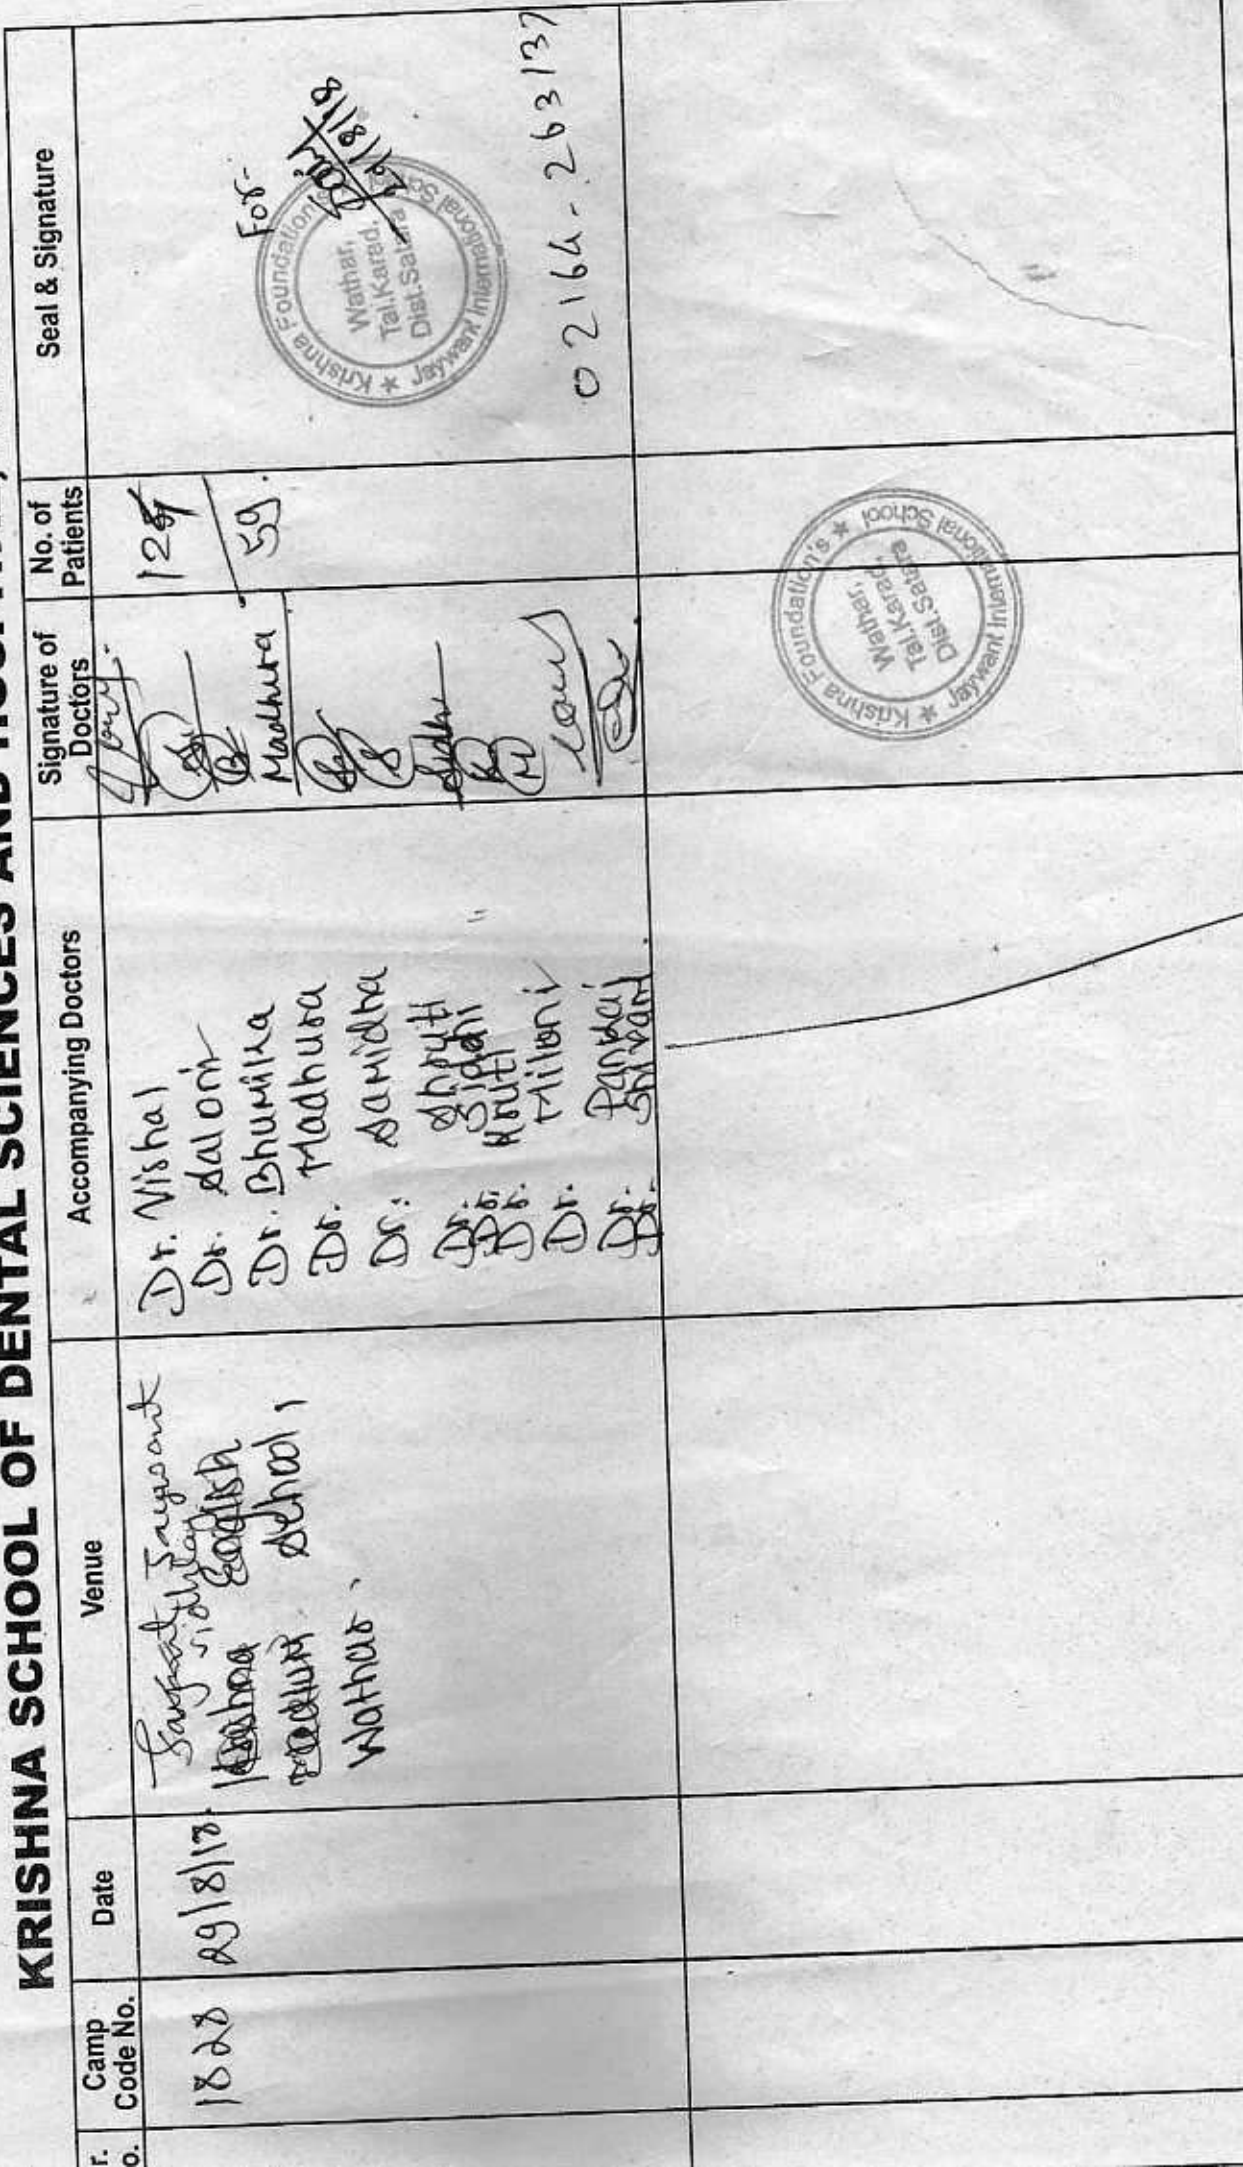 KRISHNA SCHOOL OF DENTAL SCIENCES AND
r.
o.
Camp
Code No.
Date
Venue
Accompanying Doctors
Signature of
Doctors
No. of
Patients
Seal & Signature
1828
29/8/18.
Jaywant
English
School,
Wathar.
Dr. Vishal
Dr. Saloni
Dr. Bhumika
Dr. Madhura
Dr. Samidha
Dr. Shruti
Dr. Siddhi
Dr. Kruti
Dr. Miloni
Dr. Pankaj
Dr. Shivani
Madhura
Sidhi
59.
For-
29/8/18
Krishna Foundation's
Jaywant International School
Wathar,
Tal.Karad,
Dist.Satara
02164-263137
Krishna Foundation's
Jaywant International School
Wathar,
Tal.Karad,
Dist.Satara